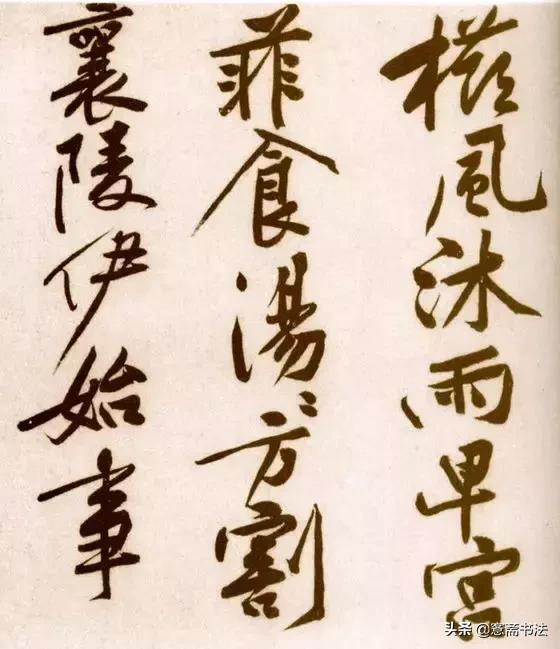 櫛風沐雨卑宮
菲食湯〻方割
襄陵伊始事
头条 @斋书法